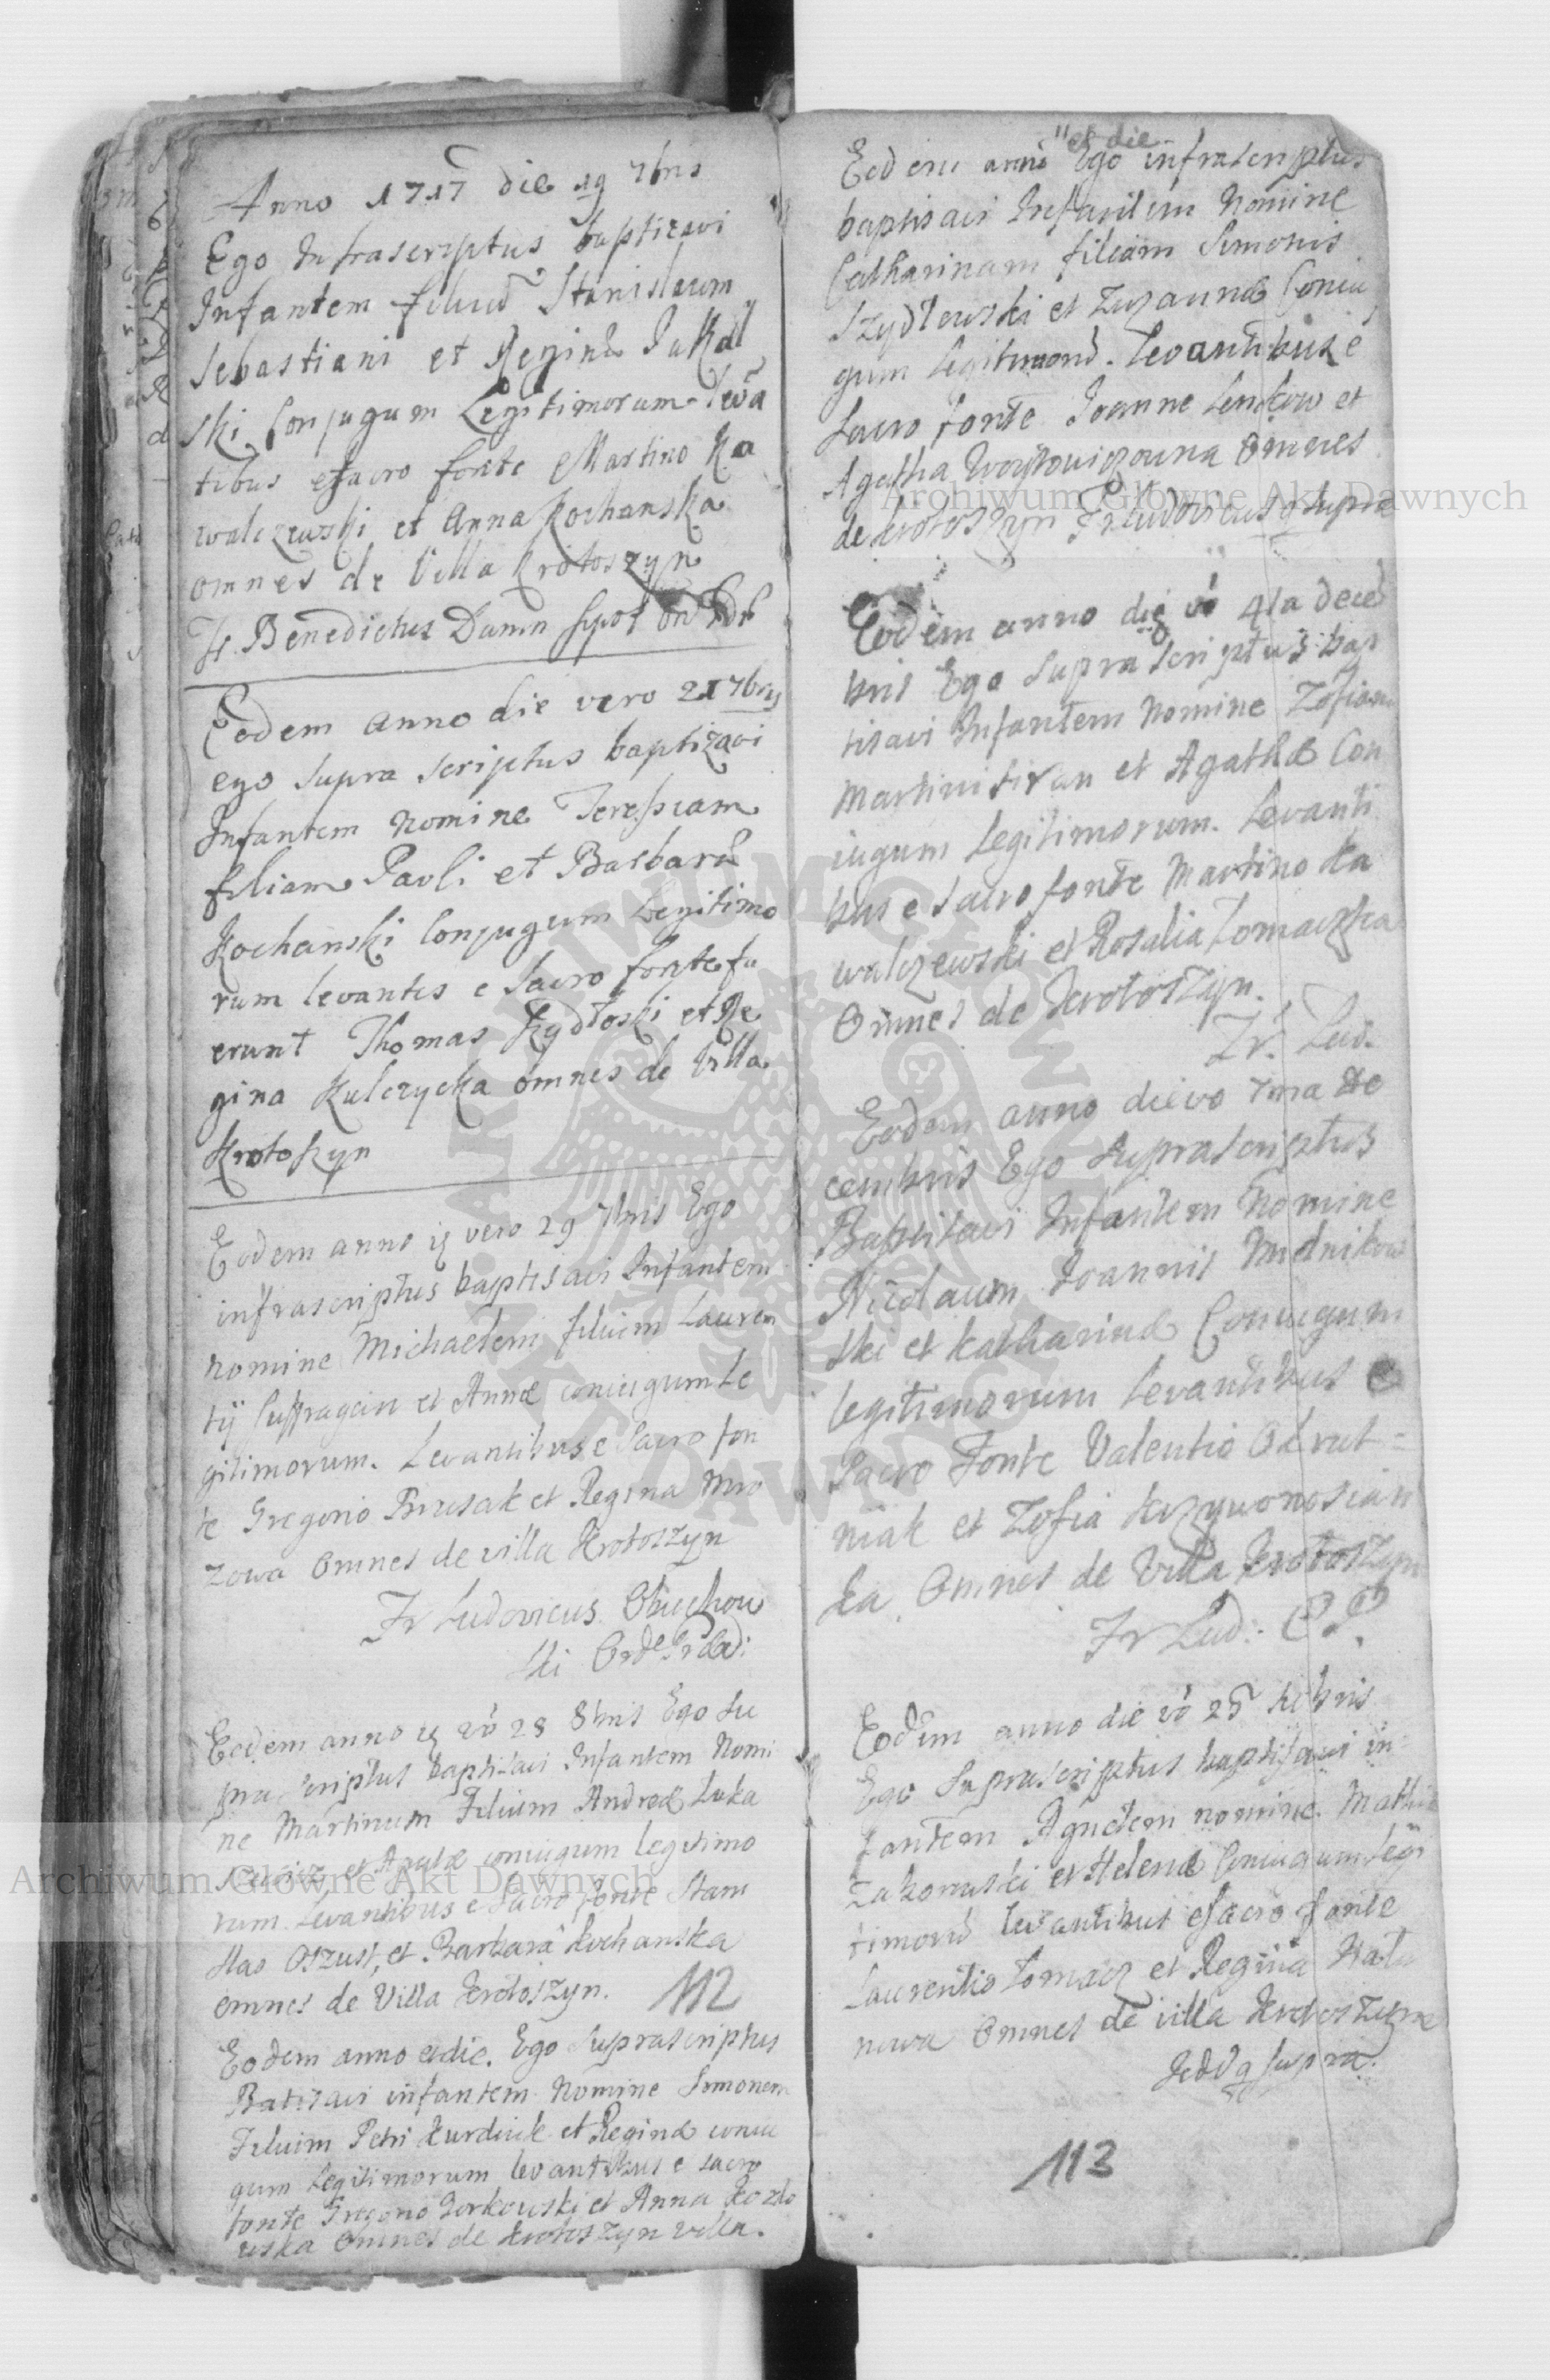 Anno 1717 die 19 7bris
Ego Infrascriptus baptizavi
Infantem filiū Stanislaum
Sebastiani et Reginæ
ski Conjugum Legitimorum levā
tibus esacro fonte Martino Ka
walczewski et Anna Kochanska
omnes de Villa Krotoszyn
Fr. Benedictus Damn
Eodem anno die vero 21 7bris
ego supra scriptus baptizavi
Infantem nomine Teressiam
filiam Pavli et Barbaræ
Kochanski Conjugum Legitimo
rum levantes e sacro fonte fu
erunt Thomas et Re
gina Kulczycka omnes de Villa
Krotoszyn
Eodem anno vero 29 7bris Ego
infrascriptus baptisavi Infantem
nomine Michaelem filium Lauren
tij Suffragan et Annæ coniugum Le
gitimorum. Levantibus e Sacro fon
te Gregorio et Regina Mro
zowa Omnes de villa Krotoszyn
Fr Ludovicus Obuchow
ski
Eodem anno vō 28 8bris Ego Su
pra scriptus baptisavi Infantem Nomi
ne Martinum Filium Andreæ Luka
et coniugum legitimo
rum Levantibus e Sacro fonte Stani
slao Oszust, et Barbara Kochanska
omnes de Villa Krotoszyn.
112
Eodem anno et die. Ego Suprascriptus
Batisavi infantem Nomine Simonem
Filium Petri Kurdwik et Reginæ coniu
gum Legitimorum levantibus e sacro
fonte Gregorio Gorkowski et Anna Kozlo
wska Omnes de Krotoszyn villa.
"et die
Eodem anno Ego infrascriptus
baptisavi Infantem Nomine
Catharinam filiam Simonis
Szydlewski et Zuzannæ Coniu
gum Legitimorū. Levantibus e
Sacro fonte Joanne Lenkow et
Agatha Woytowiczowna Omnes
de Krotoszyn Fr Ludovicus q supra
Eodem anno die vō 4ta decē
bris Ego supra scriptus bap
tisavi Infantem Nomine Zofiam
Martini et Agathæ Con
iugum Legitimorum. Levanti
bus e sacro fonte Martino Ka
walczewski et Rosalia Tomaczka
Omnes de Krotoszyn.
Fr. Lud.
Eodem anno die vo 7ma de
cembris Ego Suprascriptus
Baptisavi Infantem Nomine
Nicolaum Joannis Mudnikow
ski et Katharinæ Coniugum
legitimorum Levantibus e
Sacro Fonte Valentio
niak et Zofia Krzywonosian
ka Omnes de Villa Krotoszyn
Fr Lud:
Eodem anno die vō 25
Ego Suprascriptus baptisavi in=
fantem Agnetem nomine. Mathiæ
Zakowski et Helenæ Coniugum Legi
timorū levantibus e sacro fonte
Laurentio Tomacz et Regina
nowa Omnes de villa Krotoszyn
q supra.
113
Archiwum Główne Akt Dawnych
Archiwum Główne Akt Dawnych
ARCHIWUM GŁÓWNE AKT DAWNYCH